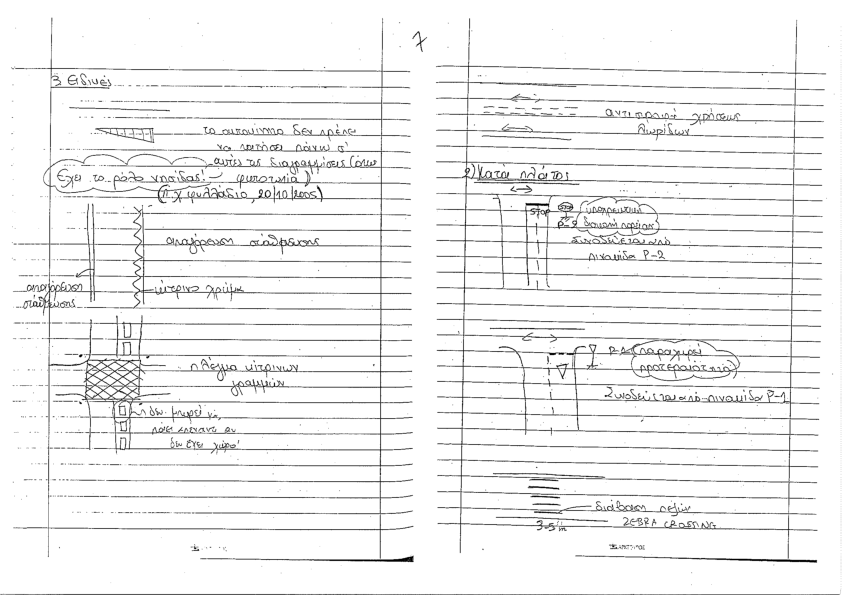 7
3 Ειδικές
το αυτοκίνητο δεν πρέπει
να πατήσει πάνω σ'
αυτές τις διαγραμμίσεις (όπως
Έχει το ρόλο νησίδας! φωτοτυπία)
(Π.χ φυλλάδιο, 20/10/2005)
απαγόρευση στάθμευσης
απαγόρευση
στάθμευσης
κίτρινο χρώμα
πλέγμα κίτρινων
γραμμών
δεν μπορεί να
πάει απέναντι αν
δεν έχει χώρο!
αντιστροφή χρήσεως
λωρίδων
2) Κατά πλάτος
STOP
STOP
υποχρεωτική
P-2 διακοπή πορείας
Συνοδεύεται από
πινακίδα P-2
P-1 παραχωρεί
προτεραιότητα
Συνοδεύεται από πινακίδα P-1
διάβαση πεζών
3-5m ZEBRA CROSSING